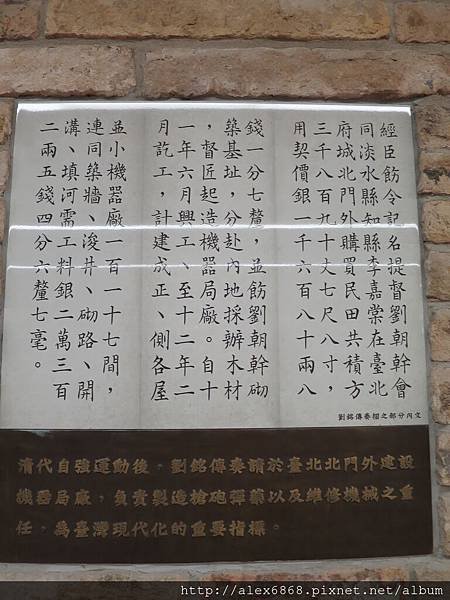 經臣飭令記名提督劉朝幹會
同淡水縣知縣李嘉棠在臺北
府城北門外購買民田共積方
三千八百九十丈七尺八寸，
用契價銀一千六百八十兩八
錢一分七釐，並飭劉朝幹砌
築基址，分赴內地採辦木材
，督匠起造機器局廠。自十
一年六月興工、至十二年二
月訖工，計建成正、側各屋
並小機器廠一百一十七間，
連同築牆、浚井、砌路、開
溝、填河需工料銀二萬三百
二兩五錢四分六釐七毫。
劉銘傳奏摺之部分內文
清代自強運動後，劉銘傳奏請於臺北北門外建設
機器局廠，負責製造槍砲彈藥以及維修機械之重
任，為臺灣現代化的重要指標。
http://alex6868.pixnet.net/album